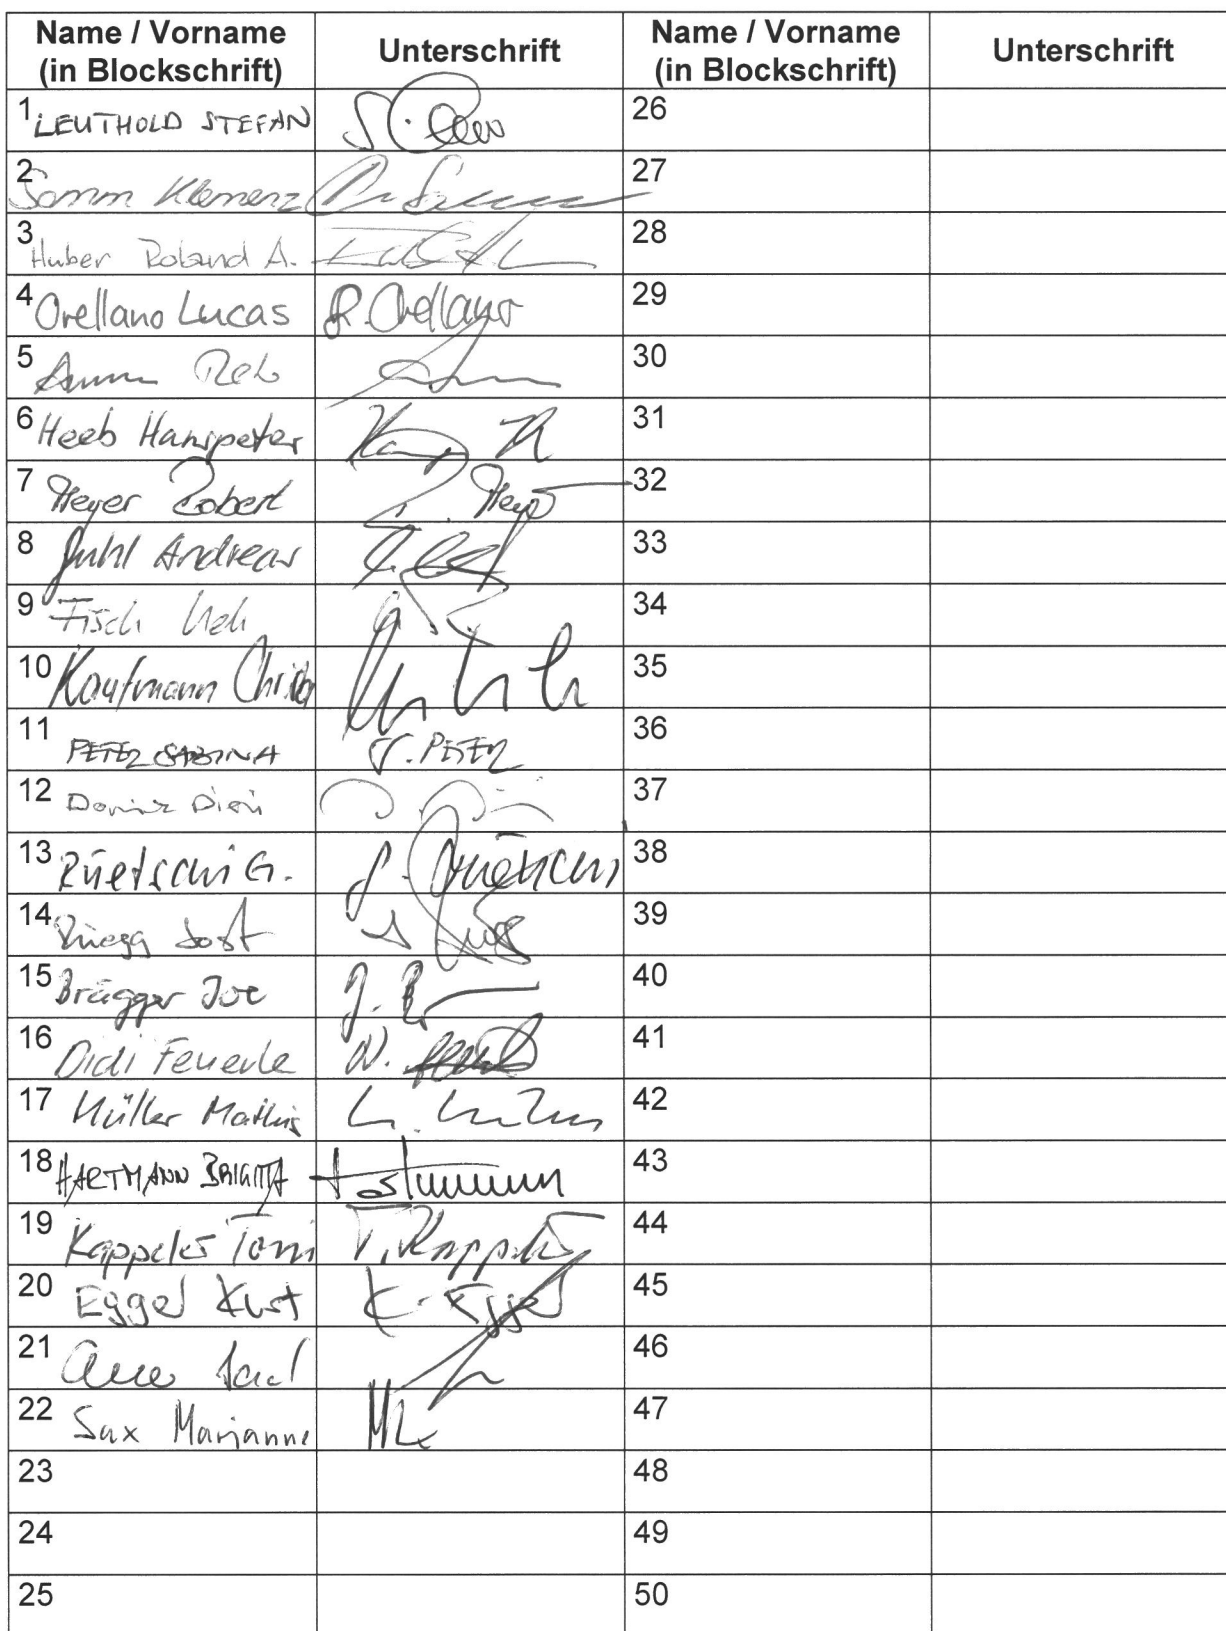 Name / Vorname (in Blockschrift) Unterschrift Name / Vorname (in Blockschrift) Unterschrift
1 LEUTHOLD STEFAN 26
2 Somm Klemenz 27
3 Huber Roland A. 28
4 Orellano Lucas R. Orellano 29
5 Reto 30
6 Heeb Hanspeter 31
7 Meyer Robert Meyer 32
8 Guhl Andreas 33
9 Fisch Ueli 34
10 Kaufmann Christa 35
11 PETER SABINA S. PETER 36
12 37
13 Rüetschi G. G. Rüetschi 38
14 Rüegg Jost 39
15 Brägger Joe J. B 40
16 Didi Feuerle D. 41
17 Müller Mathis 42
18 HARTMANN BRIGITTA 43
19 Kappeler Toni T. Kappeler 44
20 Egger Kurt K. Egger 45
21 46
22 Sax Marianne 47
23 48
24 49
25 50